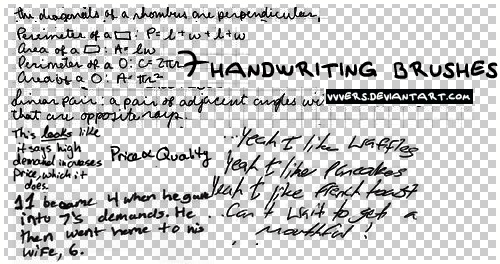 the diagonals of a rhombus are perpendicular.
Perimeter of a ▭: P=l+w+l+w
Area of a ▭: A=lw
Perimeter of a O: C=2πr
Area of a O: A=πr²
7 HANDWRITING BRUSHES
VVVERS.DEVIANTART.COM
linear pair: a pair of adjacent angles wi
that are opposite rays.
This looks like
it says high
demand increases
price, which it
does.
Price ∝ Quality
11 became 4 when he gave
into 7's demands. He
then went home to his
wife, 6.
...Yeah I like Waffles
Yeah I like Pancakes
Yeah I like french toast
...Can't wait to get a
mouthful!